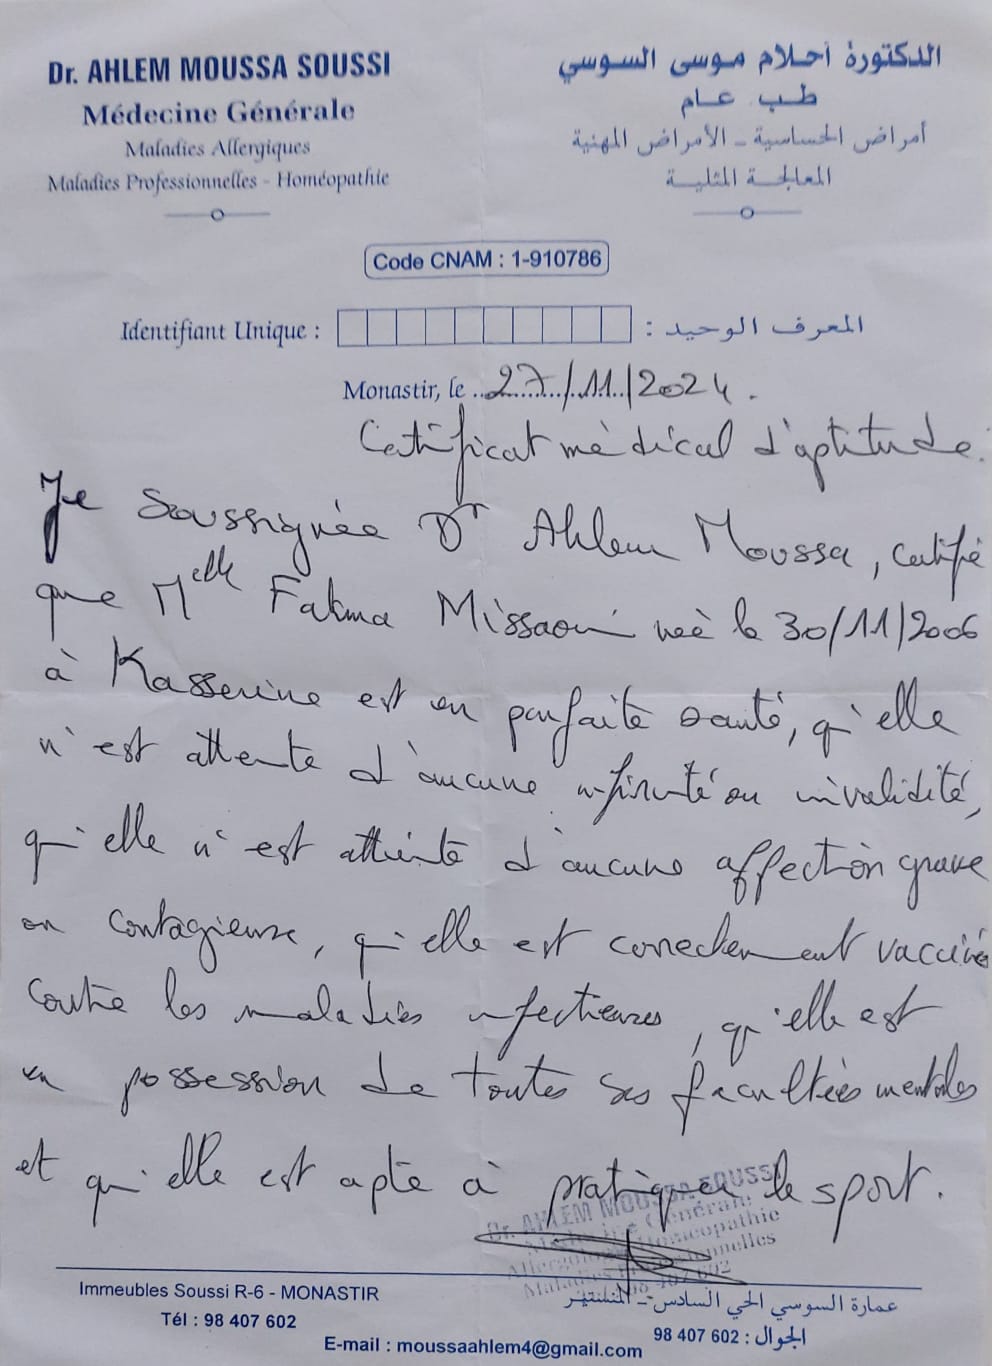 Dr. AHLEM MOUSSA SOUSSI
Médecine Générale
Maladies Allergiques
Maladies Professionnelles - Homéopathie
الدكتورة أحلام موسى السوسي
طب عام
أمراض الحساسية - الأمراض المهنية
المعالجة المثلية
Code CNAM : 1-910786
Identifiant Unique : المعرف الوحيد :
Monastir, le 27/11/2024.
Certificat médical d'aptitude.
Je soussignée Dr Ahlem Moussa, certifie
que Melle Fatma Missaoui née le 30/11/2006
à Kasserine est en parfaite santé, qu'elle
n'est atteinte d'aucune infirmité ou invalidité,
qu'elle n'est atteinte d'aucune affection grave
ou contagieuse, qu'elle est correctement vaccinée
contre les maladies infectieuses, qu'elle est
en possession de toutes ses facultées mentales
et qu'elle est apte à pratiquer le sport.
Dr. AHLEM MOUSSA SOUSSI
Médecine Générale
Homéopathie
Maladies Professionnelles
98 407 602
Immeubles Soussi R-6 - MONASTIR
Tél : 98 407 602
عمارة السوسي الحي السادس - المنستير
الجوال : 98 407 602
E-mail : moussaahlem4@gmail.com